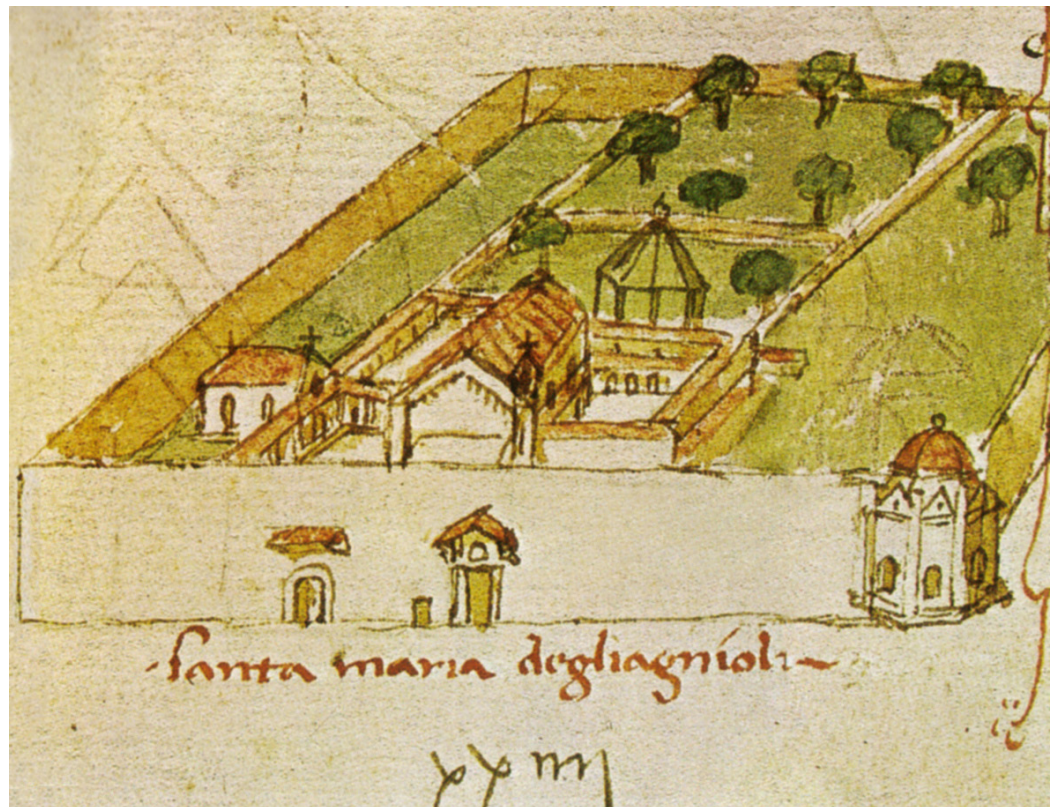 santa maria degliagnioli
xxiiij